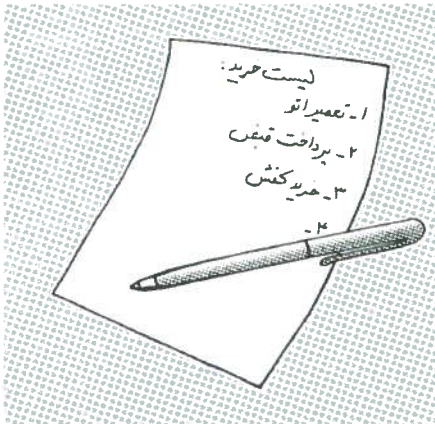 لیست خرید:
۱- تعمیر اتو
۲- پرداخت قبض
۳- خرید کفش
۴-